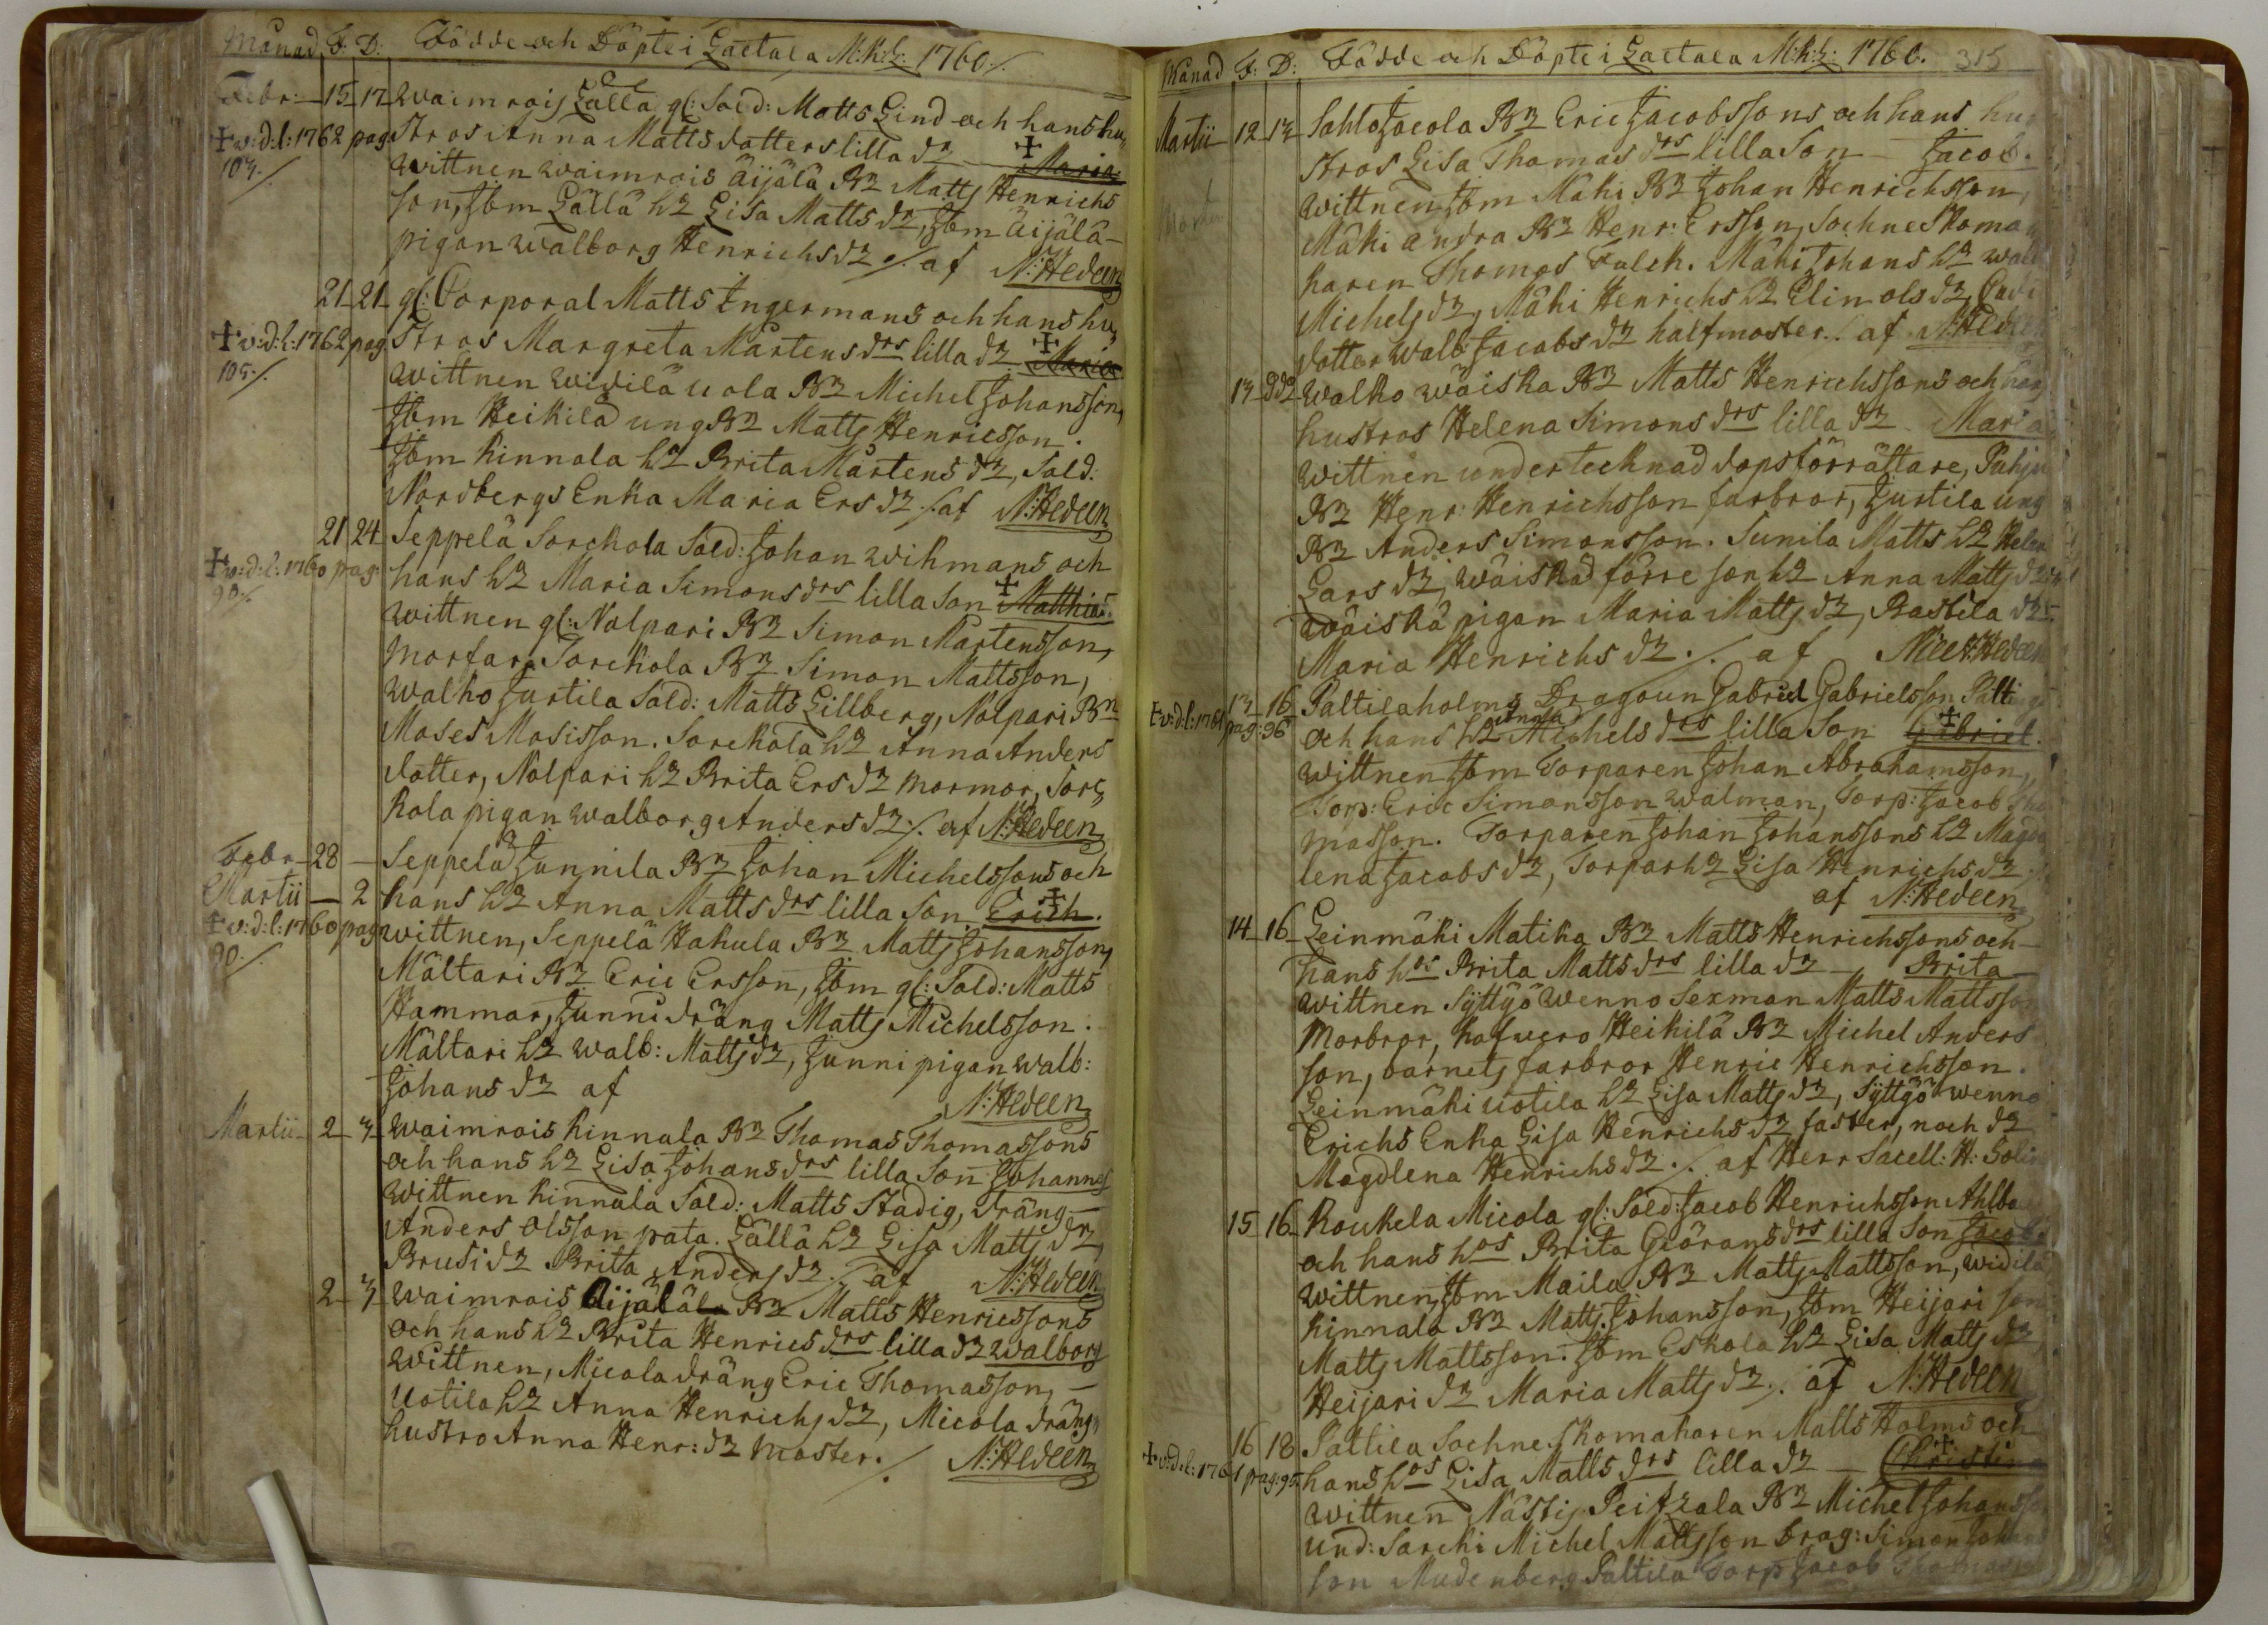 Månad F: D: Födde och Döpte i Laetala M:K:L: 1760./.
Febr: 15 17 Waimrois Lällä gl: Sold: Matts Lind och hans hu„
✝ v:d:l: 1762 pag. stros Anna Matts dotters lilla dr ✝ Maria
104./. Wittnen Waimrois Äijälä Br Matts Henrichs
son, Ibm Lällä h2 Lisa Matts dr, Ibm Äijälä-
pigan Walborg Henrichs dr ./. af N: Hedeen
21 21 gl: Corporal Matts Ingermans och hans hu„
✝ v:d:l: 1762 pag. stros Margreta Mårtens drs lilla dr ✝ Maria
105./. Wittnen Widilä uola Br Michel Johansson,
Ibm Heikilä ung Br Matts Henricsson.
Ibm Kinnala h2 Brita Mårtens dr, Sold:
Nordbergs Enka Maria Ers dr ./. af N: Hedeen
21 24 Seppelä Sorckola Sold: Johan Wikmans och
✝ v:d:l: 1760 pag. hans h2 Maria Simons drs lilla Son ✝ Matthias.
90./. Wittnen gl: Nolpari Br Simon Mårtensson,
Morfar, Sorckola Br Simon Mattsson,
Walko Justila Sold: Matts Lillberg, Nolpari Br
Moses Mosisson. Sorckola h2 Anna Anders
dotter, Nolpari h2 Brita Ers dr Mormor, Sorc„
kola pigan Walborg Anders dr ./. af N: Hedeen
Febr 28 — Seppelä Junnila Br Johan Michelssons och
Martii — 2 hans h2 Anna Matts drs lilla Son ✝ Erich.
✝ v:d:l: 1760 pag. Wittnen, Seppelä Hakula Br Matts Johansson,
90./. Mältari Br Eric Ersson, Ibm gl: Sold: Matts
Hammar, Junni dräng Matts Michelsson.
Mältari h2 Walb: Matts dr, Junni pigan Walb:
Johans dr af N: Hedeen
Martii 2 4 Waimrois Kinnala Br Thomas Thomassons
och hans h2 Lisa Johans drs lilla Son Johannes
Wittnen Kinnala Sold: Matts Stadig, dräng
Anders Olsson pata. Lällä h2 Lisa Matts dr,
Brusi dr Brita Anders dr ./. af N: Hedeen
2 4 Waimrois Äijälä Br Matts Henricssons
och hans h2 Brita Henrics drs lilla dr Walborg
Wittnen, Micola dräng Eric Thomasson,
Uotila h2 Anna Henrichs dr, Micola dräng„
hustro Anna Henr: dr Moster. ./. N: Hedeen
Månad F: D: Födde och Döpte i Laetala M:K:L: 1760. 315
Martii 12 13 Sahlo Jacola Br Eric Jacobssons och hans hu„
stros Lisa Thomas drs lilla Son Jacob.
Wittnen Ibm Mäki Br Johan Henrichsson,
Mäki andra Br Henr: Ersson, Sochne Skoma
karen Thomas Falck. Mäki Johans h2 Walb
Michels dr, Mäki Henrichs h2 Elin Ols dr,
dotter Walb Jacobs dr halfmoster. af N: Hedeen
13 ddo Walko Wäiskä Br Matts Henrichssons och hans
hustros Helena Simons drs lilla dr Maria
Wittnen undertecknad dopsförrättare,
Br Henr: Henrichsson farbror, Justila ung
Br Anders Simonsson. Sunila Matts h2 Helen
Lars dr, Wäiskä förre son h2 Anna Matts dr
Wäiskä pigan Maria Matts dr, Rastila drs
Maria Henrichs dr ./. af N: Hedeen
13 16 Paltila holms Dragoun Gabriel Gabrielsson
✝ v:d:l: 1761 pag: 96 och hans h2 Anna Michels drs lilla Son ✝ Gabriel.
Wittnen Ibm Torparen Johan Abrahamsson,
Torp: Eric Simonsson Walman, Torp: Jacob Tho
masson. Torparen Johan Johanssons h2 Magda
lena Jacobs dr, Torpar h2 Lisa Henrichs dr
af N: Hedeen
14 16 Leinmäki Matika Br Matts Henrichssons och
hans hos Brita Matts drs lilla dr — Brita
Wittnen Syttyö Wenno Sexman Matts Mattsson
Morbror, Kafwero Heikilä Br Michel Anders
son, barnets farbror Henric Henrichsson.
Leinmäki Uotila h2 Lisa Matts dr, Syttyö Wenno
Erichs Enka Lisa Henrichs dr faster, noch dr
Magdlena Henrichs dr ./. af Herr Sacell: H: Solin
15 16 Koukela Micola gl: Sold: Jacob Henrichsson
och hans hos Brita Giörans drs lilla Son Jacob
Wittnen, Ibm Maila Br Matts Mattsson, Widilä
Kinnala Br Matts Johansson, Ibm Heijari son
Matts Mattsson. Ibm Eskola h2 Lisa Matts dr
Heijari dr Maria Matts dr ./. af N: Hedeen
16 18 Paltila Sochne Skomakaren Matts Holms och
✝ v:d:l: 1761 pag: 95 hans hos Lisa Matts drs lilla dr — ✝ Christina
Wittnen Nästis Peitzala Br Michel Johansson
Und: Sarcki Michel Mattsson Drag: Simon Johans
son Mudenberg Paltila Torp Jacob Thomasson